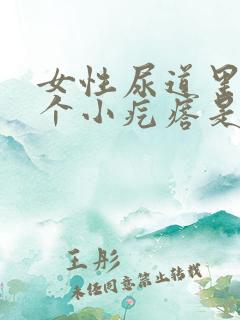 女性尿道里
个小疙瘩是
王彤
未经同意禁止转载